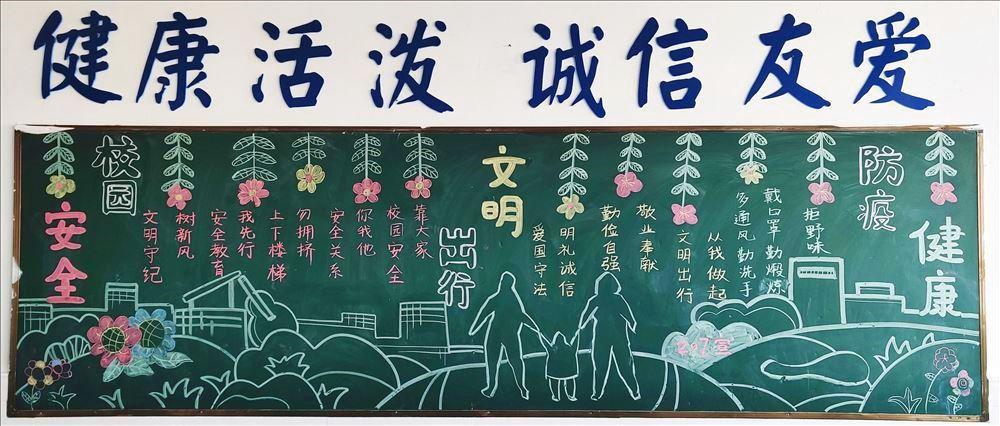 健康活泼 诚信友爱
校园
安全
文明守纪
树新风
安全教育
我先行
上下楼梯
勿拥挤
安全关系
你我他
校园安全
靠大家
文明
出行
爱国守法
明礼诚信
勤俭自强
敬业奉献
文明出行
从我做起
多通风 勤洗手
戴口罩 勤煅炼
拒野味
防疫
健康